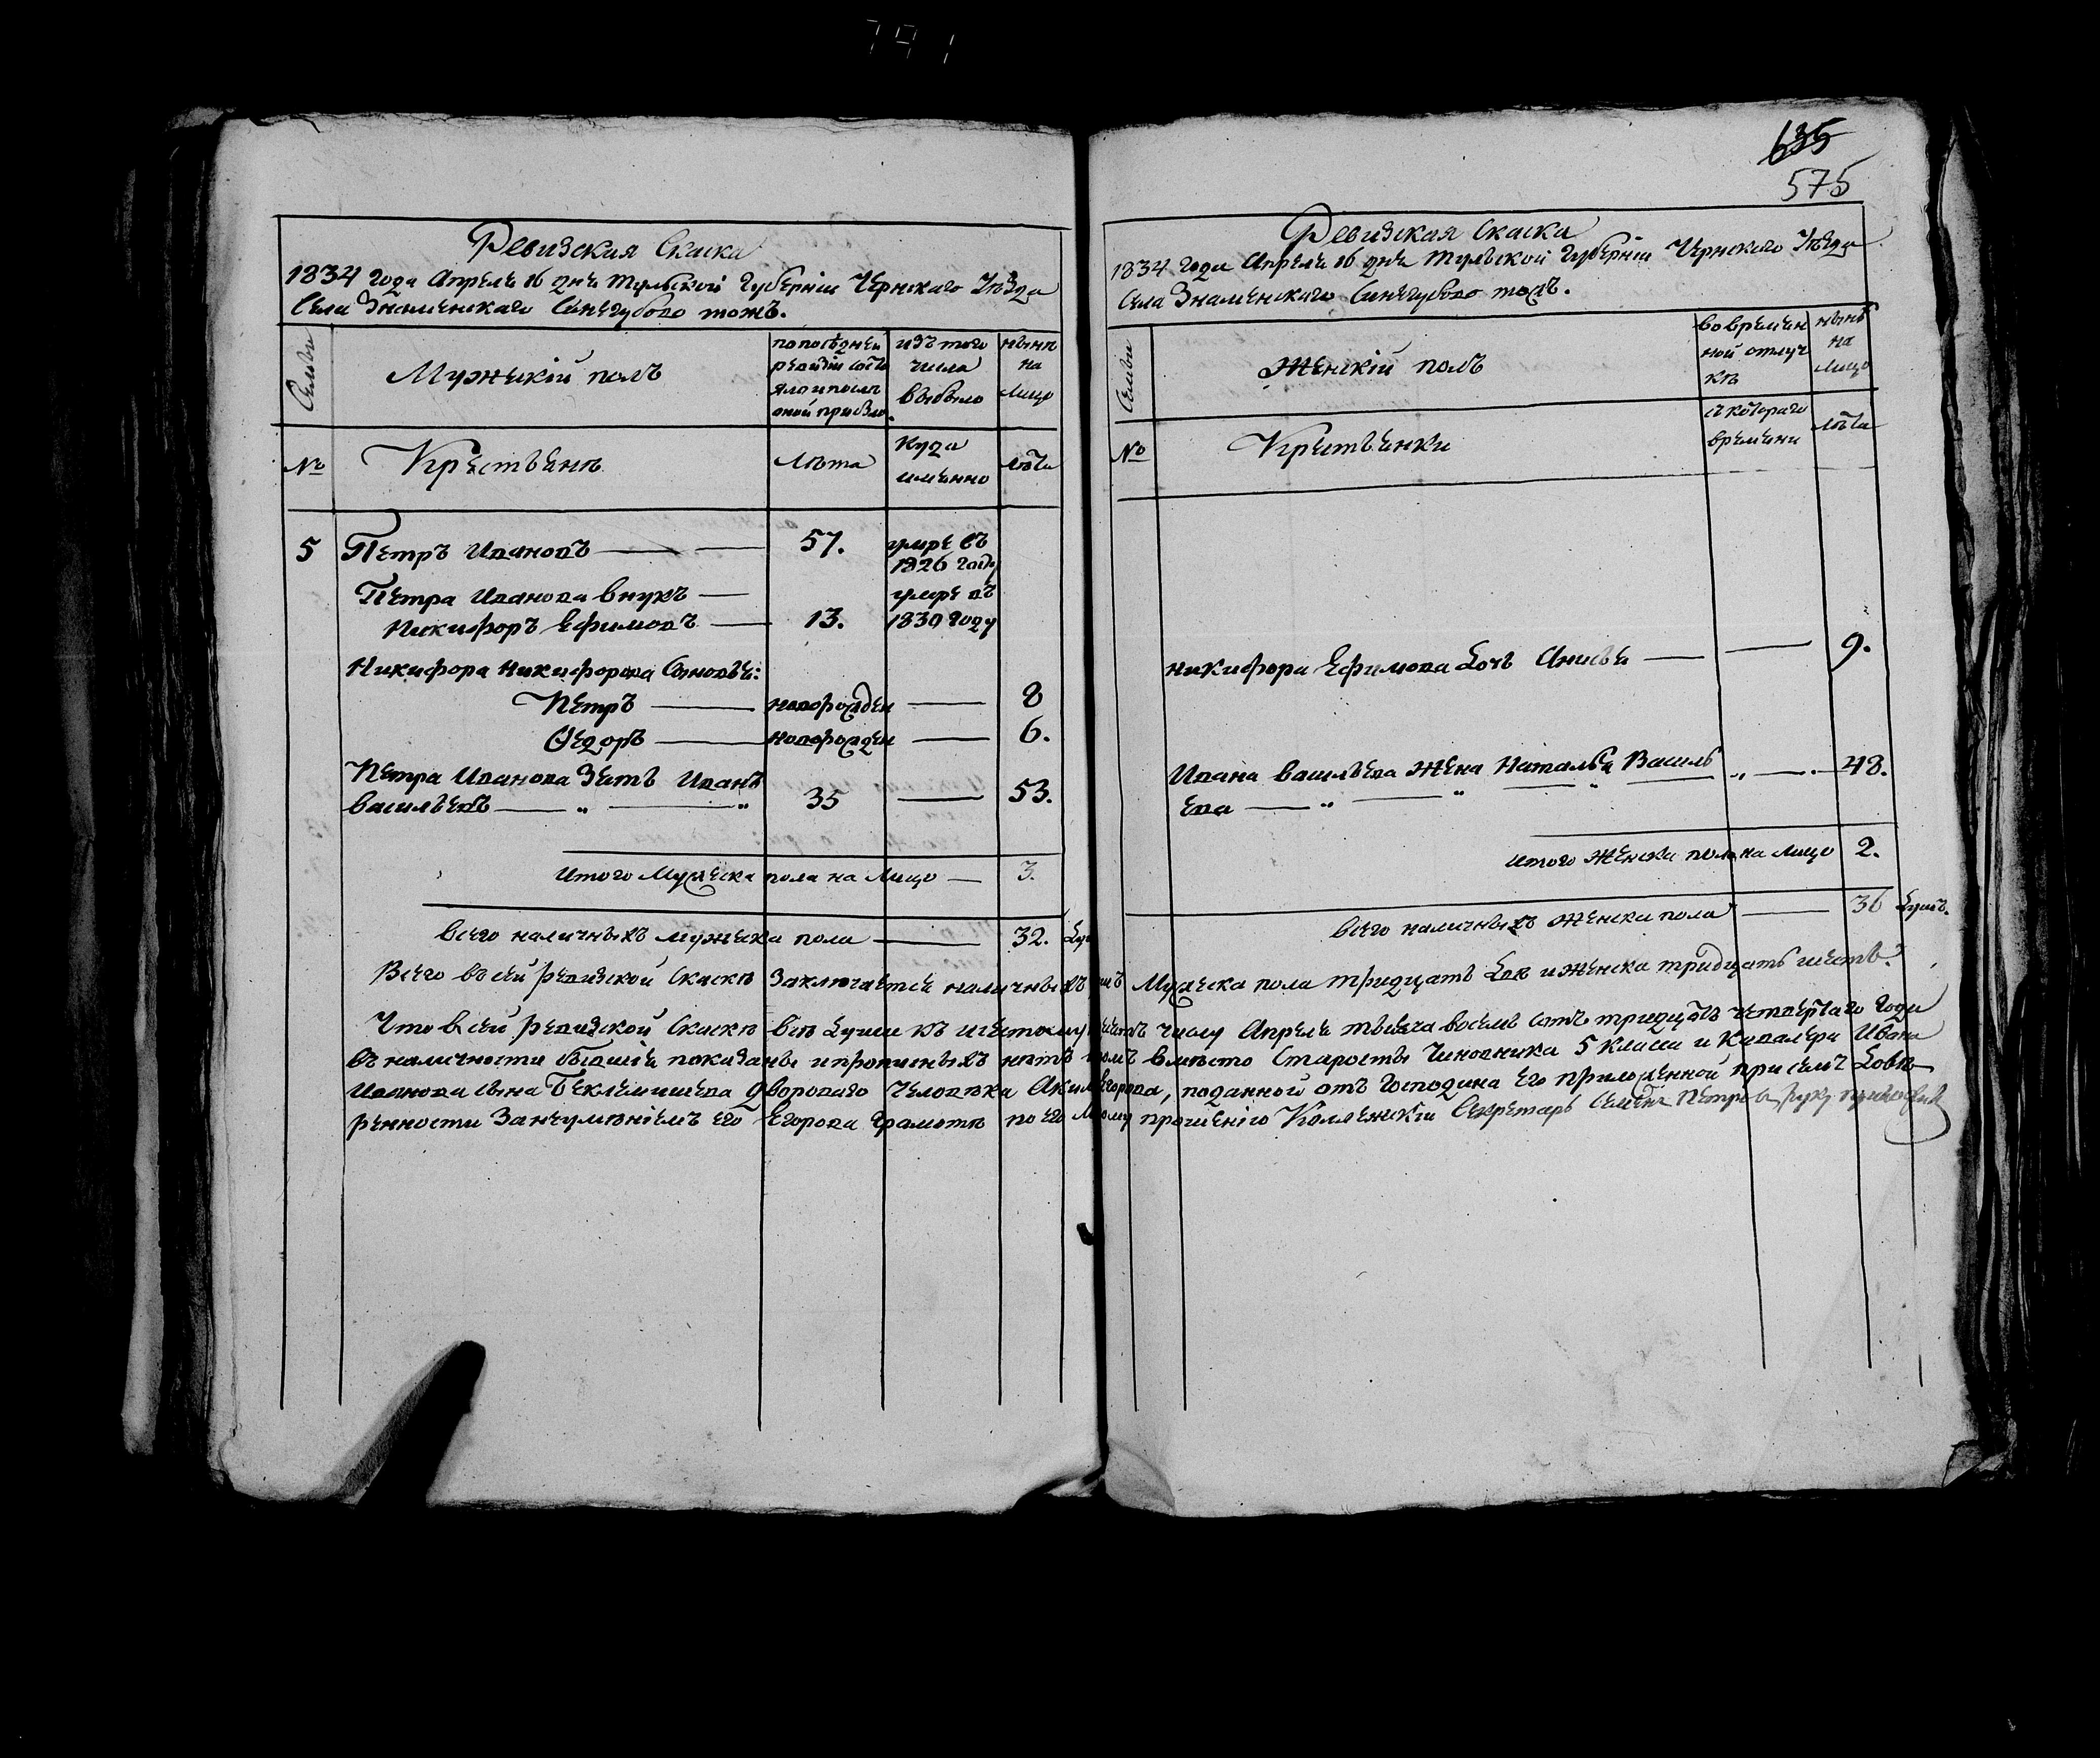 791
Ревизская Скаска
1834 года Апреля 16 дня Тульской Губернии Чернскаго Уѣзда
Села Знаменскаго Синегубово тожъ.
Семьи
Мужескій полъ
по последней ревизіи состояло и после оной прибыло
изъ того числа выбыло
нынѣ на лицо
№
Крестьяне
Лѣта
Куда именно
Лѣта
5 Петръ Ивановъ 57. умре въ 1826 году
Петра Иванова внукъ умре въ
Никифоръ Ефимовъ 13. 1830 году
Никифора Никифорова Сыновья:
Петръ новорожден 8
Ѳедоръ новорожден 6.
Петра Иванова Зять Иванъ
Васильевъ 35 53.
Итого Мужеска пола на Лицо 3.
Всего наличныхъ мужеска пола 32.
635
575
Ревизская Скаска
1834 года Апреля 16 дня Тульской Губерніи Чернскаго Уѣзда
Села Знаменскаго Синегубово тожъ.
Семьи
Женскій полъ
во временной отлучкѣ
нынѣ на лицо
№
Крестьянки
съ котораго времени
Лѣта
Никифора Ефимова дочь Анисья 9.
Ивана Васильева Жена Наталья Василь
ева 48.
Итого Женска пола на лицо 2.
Всего наличныхъ женска пола 36 душъ.
Всего въ сей ревизской Скаскѣ Заключается наличныхъ душъ Мужеска пола тридцать два и женска тридцать шесть.
Что в сей ревизской Скаскѣ всѣ души къ шестому числу Апреля тысяча восемь сотъ тридцать четвертаго года
въ наличности бывшія показаны и прописныхъ нѣтъ вместо Старосты Чиновника 5 Класса и Кавалера Ивана
Иванова сына Беклемишева двороваго человѣка Акима Егорова, поданной отъ Господина его приложенной при семъ довѣ
ренности За неумѣніемъ его Егорова Грамотѣ по его прошенію Коллежскій Секретарь Семенъ Петровъ руку приложилъ